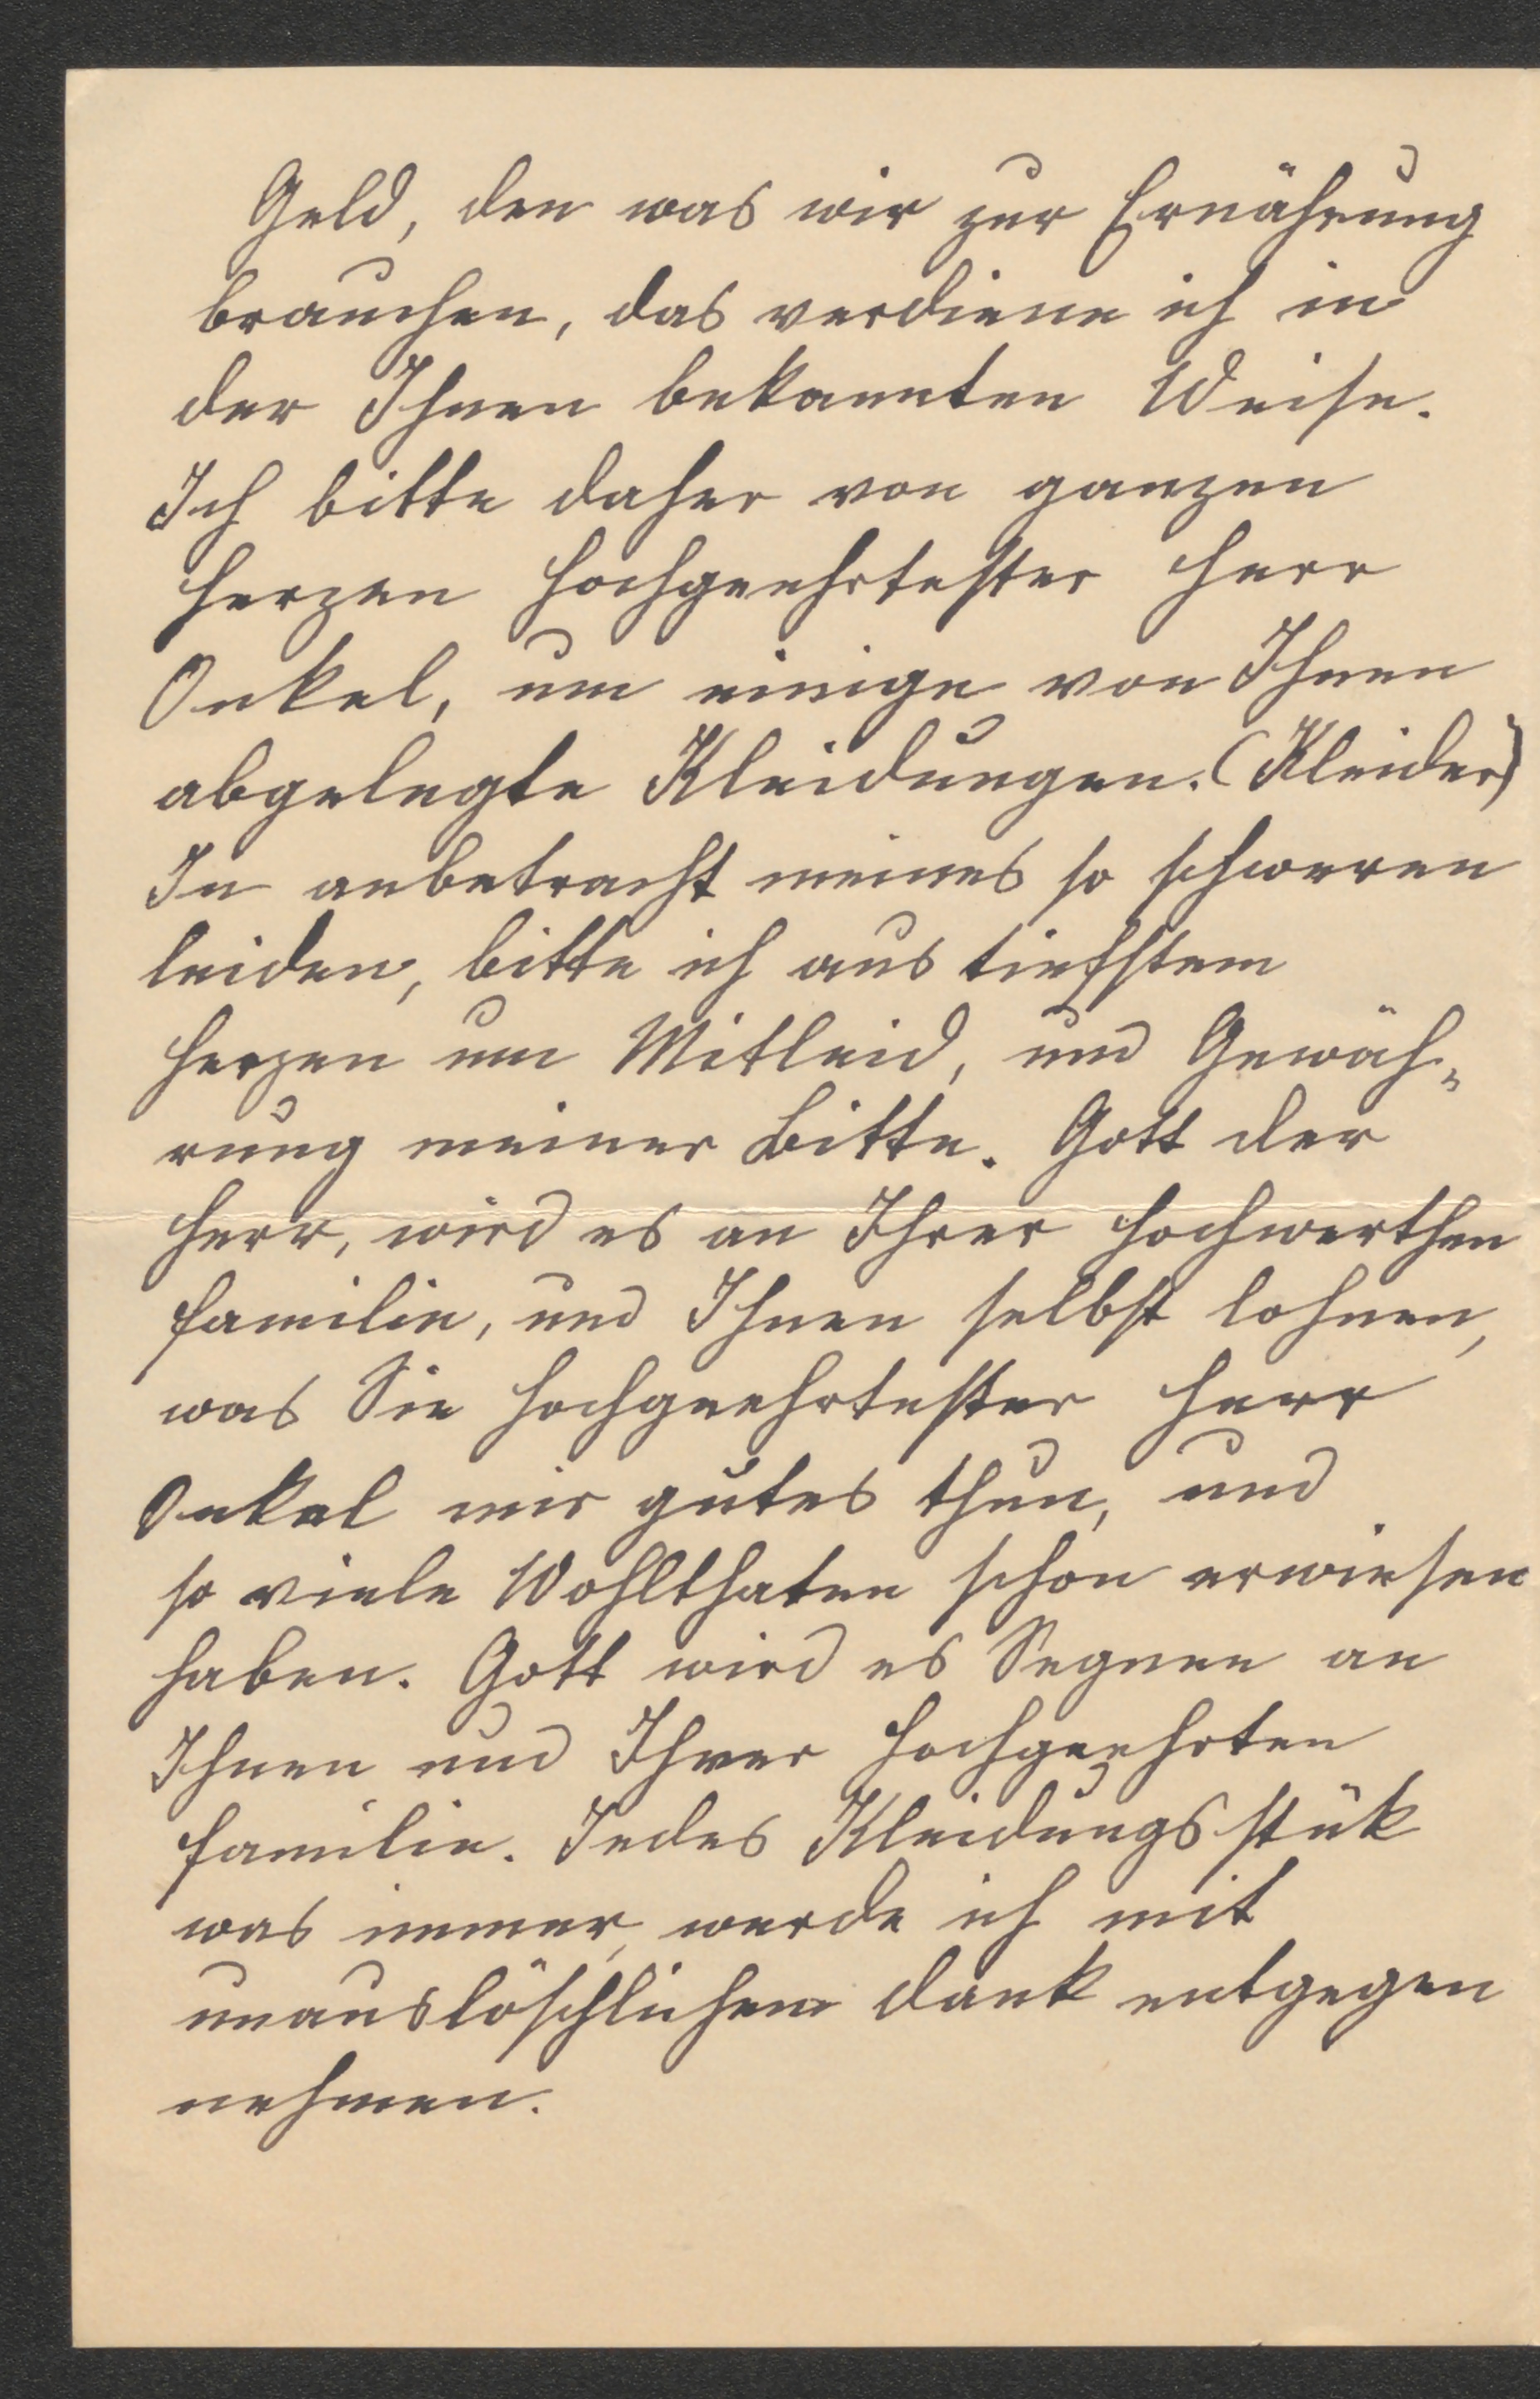 Geld, den was wir zur Ernährung
brauchen, das verdiene ich in
der Ihnen bekannten Weise.
Ich bitte daher von ganzen
Herzen Hochgeehrtester Herr
Onkel, um einige von Ihnen
abgelegte Kleidungen. (Kleider)
In anbetracht meines so schweren
leiden, bitte ich aus tiefstem
Herzen um Mitleid, und Gewäh„
rung meiner Bitte. Gott der
Herr, wird es an Ihrer Hochwerthen
Familie, und Ihnen selbst lohnen,
was Sie Hochgeehrtester Herr
Onkel mir gutes thun, und
so viele Wohlthaten schon erwiesen
haben. Gott wird es Segnen an
Ihnen und Ihrer Hochgeehrten
Familie. Jedes Kleidungsstük
was immer, werde ich mit
unauslöschlichem dank entgegen
nehmen.